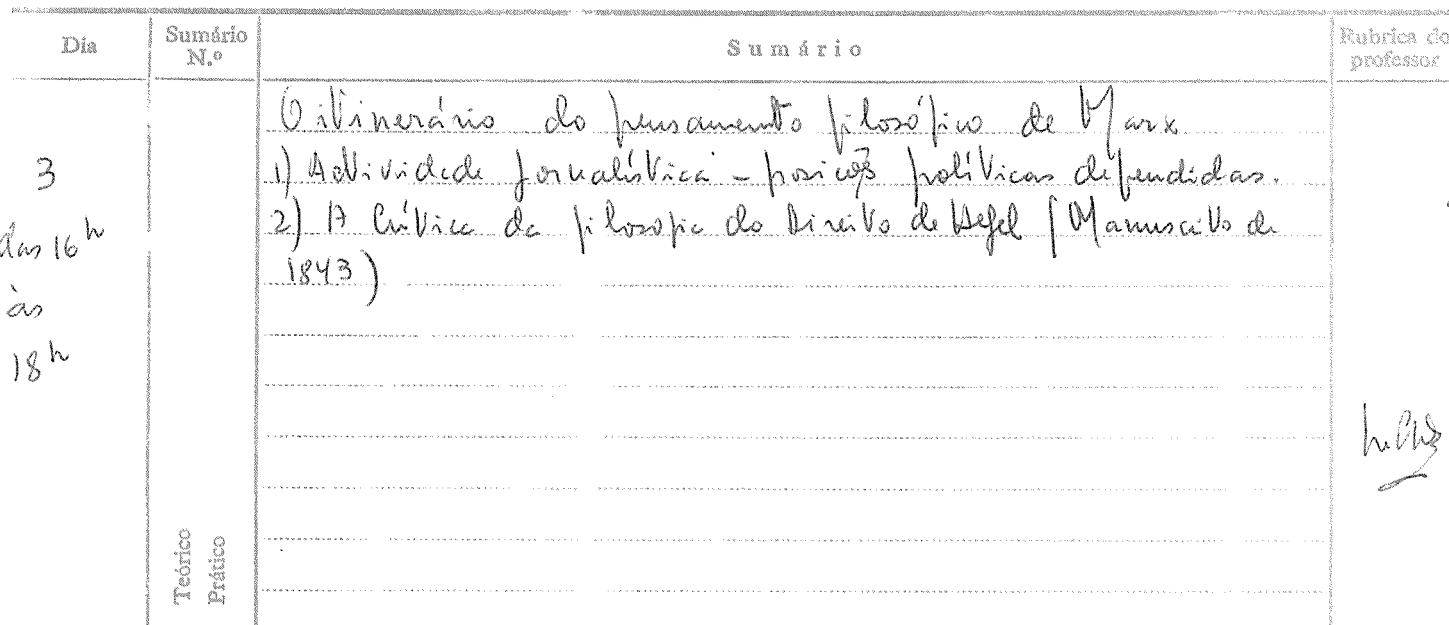 Dia
Sumário N.º
Sumário
Rubrica do professor
3
das 16h
às
18h
O itinerário do pensamento filosófico de Marx
1) Actividade jornalística - posições políticas defendidas.
2) A Crítica da filosofia do Direito de Hegel (Manuscrito de
1843)
Teórico
Prático